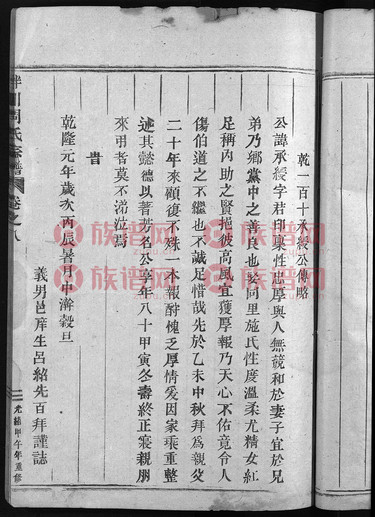 乾一百十承綬公傳畧
公諱承綬字若印稟性忠厚與人無競和於妻子宜於兄
弟乃鄉黨中之善良也娶同里施氏性度溫柔尤精女紅
足稱內助之賢光彼高風宜獲厚報乃天心不佑竟令人
傷伯道之不繼也不誠足惜哉先於乙未中秋拜為親父
二十年來顧復不殊一本報酧愧乏厚情爰因家乘重整
述其懿德以著芳名公享年八十甲寅冬壽終正寢親朋
來弔者莫不涕泣焉
旹
乾隆元年歲次丙辰暑月中澣穀旦
義男邑庠生呂紹先百拜謹誌
周氏宗譜
卷之八
光緒甲午年重修
族谱网
zupu.cn